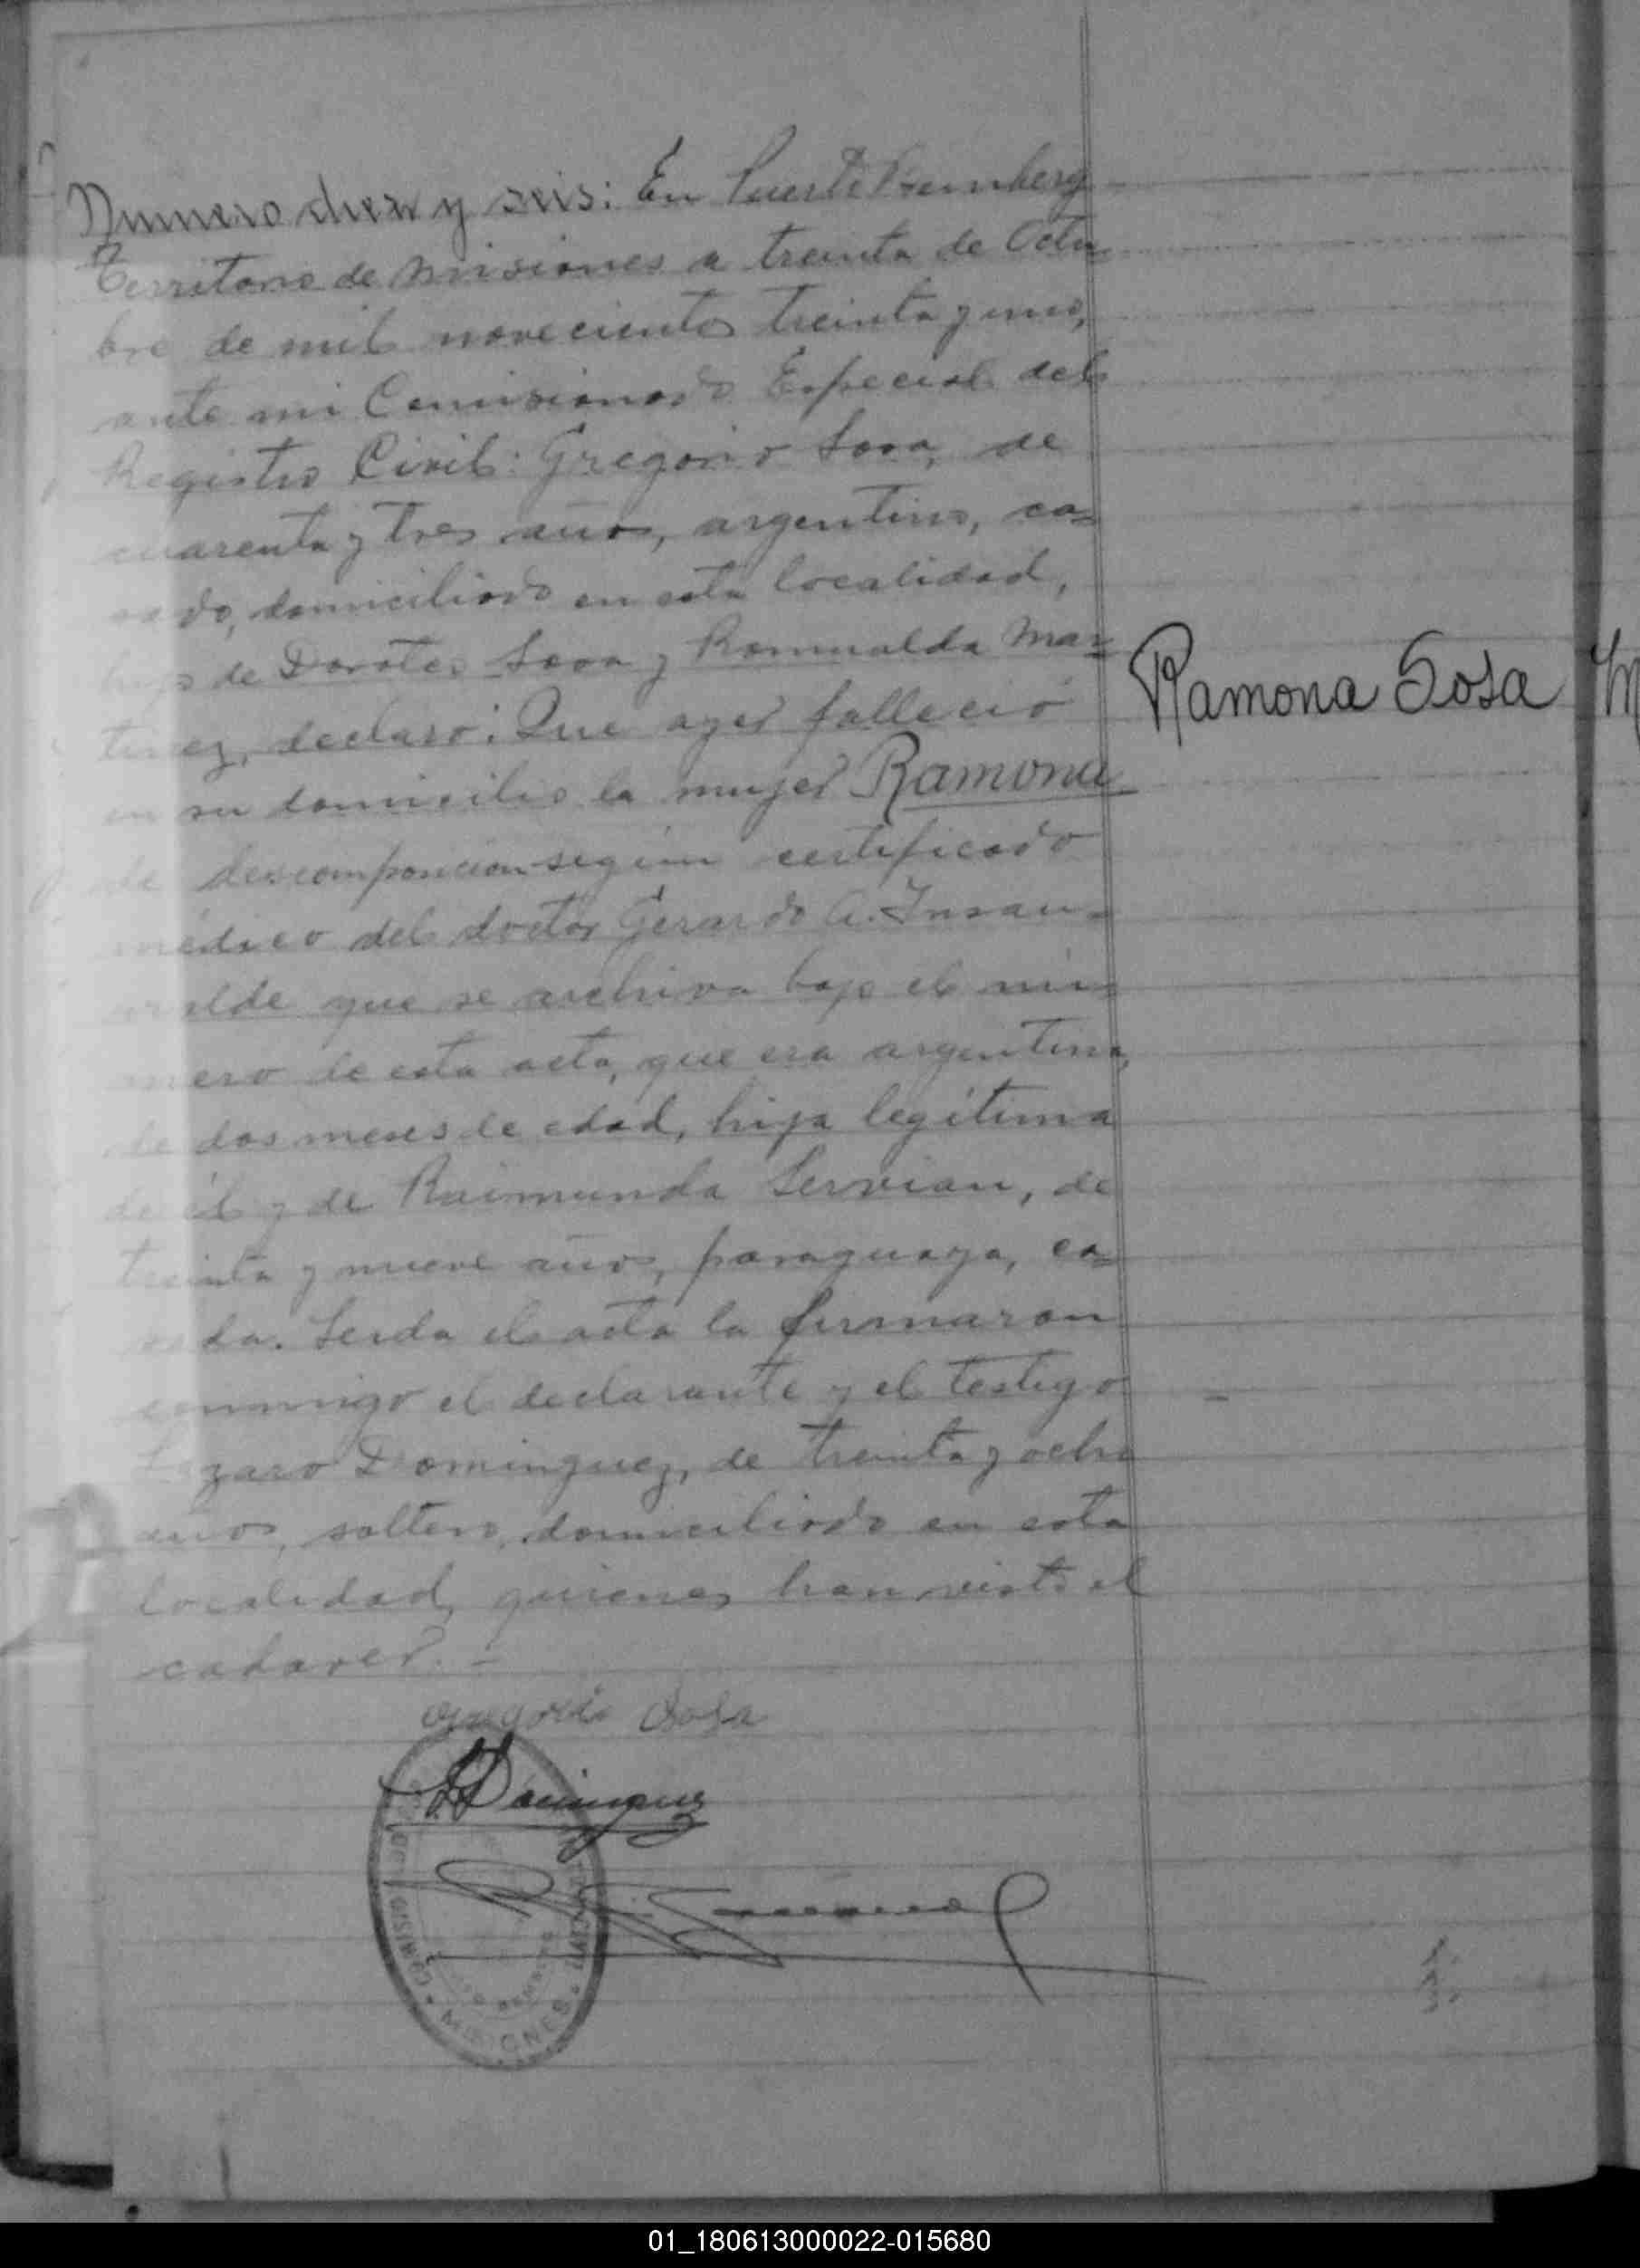 Numero diez y seis: En Puerto Bemberg
Territorio de Misiones a treinta de Octu
bre de mil novecientos treinta y uno,
ante mi Comisionado Especial del
Registro Civil: Gregorio Sosa, de
cuarenta y tres años, argentino, ca=
sado, domiciliado en esta localidad,
hijo de Doroteo Sosa y Romualda Mar=
tinez, declaró: Que ayer falleció
en su domicilio la mujer Ramona
de descomposicion segun certificado
médico del doctor Gerardo A. Insau=
rralde que se archiva bajo el nú=
mero de esta acta, que era argentina,
de dos meses de edad, hija legítima
de él y de Raimunda Servian, de
treinta y nueve años, paraguaya, ca=
sada. Leida el acta la firmaron
conmigo el declarante y el testigo
Lazaro Dominguez, de treinta y ocho
años, soltero, domiciliado en esta
localidad, quienes han visto el
cadaver. -
Ramona Sosa
Gregorio Sosa
L Dominguez
MISIONES
01_180613000022-015680